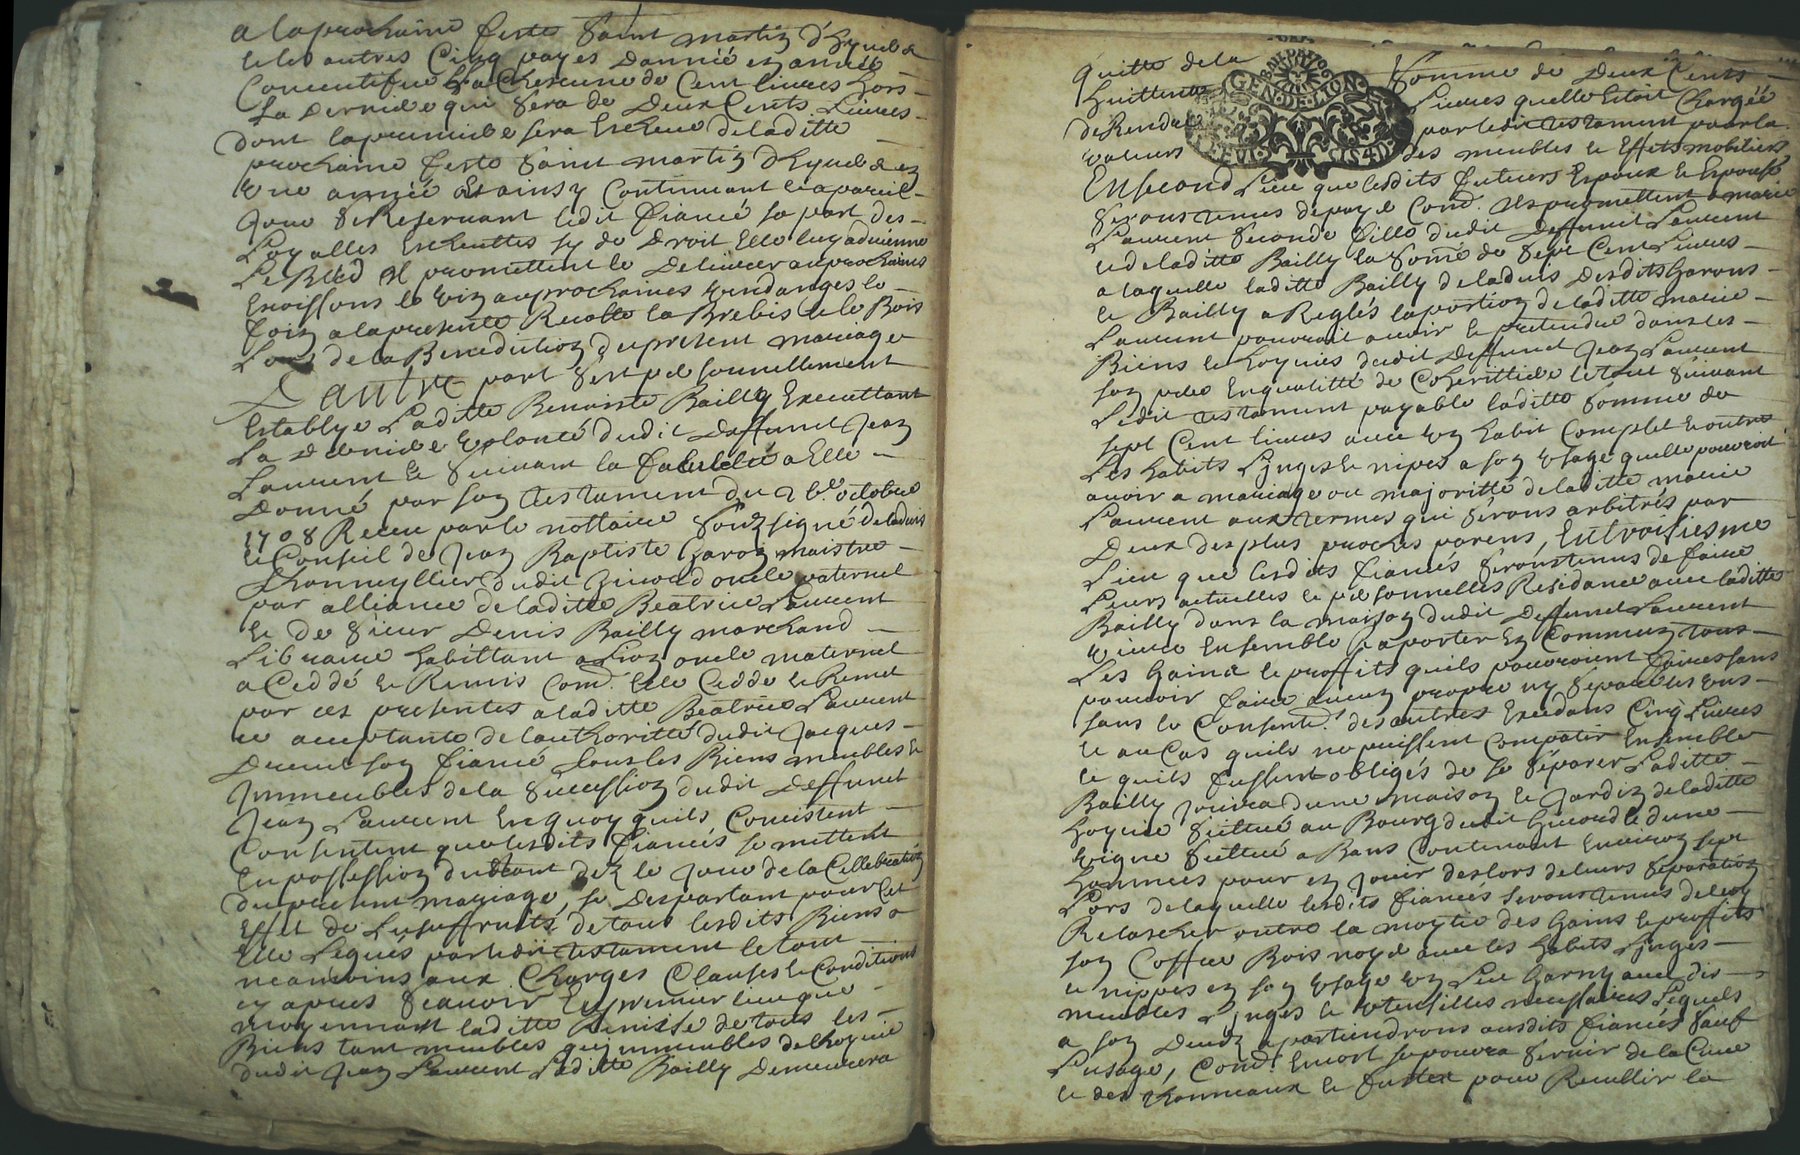 a la prochaine feste Saint martin d'hyuer &
et les autres Cinq payes d'année en année
Consecutifue Chescune de Cent liures hors
La derniere qui sera de Deux Cents Liures
dont la premiere sera Escheue de laditte
prochaine feste Saint martin d'hyuer en
une année et ainsy Continuant a pareil
Jour se Reseruant ledit fiancé sa part des
Loyalles Escheuttes sy de Droit Elle luy aduienne
Le Bled Il promettent le Deliurer au prochaines
moissons le vin au prochaines vendanges le
foin a la presente Recolte la Brebis et le Bois
Lors de la Benediction du present mariage
D'autre part s'est personnellement
Establye Laditte Benoiste Bailly Executtant
La Derniere volonté dudit Deffunct Jean
Laurent et suiuant la faculté a Elle
Donné par son testament du octobre
1708 Receu par le nottaire Soubzsigné de laduis
et Conseil de Jean Baptiste Garon maistre
Thonnellier dudit Giuord oncle paternel
par alliance de laditte Beatrice Laurent
et de Sieur Denis Bailly marchand
Libraire habittant a Lion oncle maternel
a Ceddé et Remis Comd. Elle Cedde et Remet
par ces presentes a laditte Beatrice Laurent
ce acceptante de l'authoritté dudit Jacques
son fiancé tous les Biens meubles et
Jmmeubles de la Succession dudit Deffunct
Jean Laurent En quoy quils Concistent
Consentent que lesdits fiancés se mettent
En possession dez le Jour de la Cellebration
du present mariage, se Despartant pour Cet
Effet de L'usuffruits de tous lesdits Biens a
Elle Legués par ledit testament le tout
neanmoins aux Charges Clauses et Conditions
cy apres Scauoir En premier lieu que
moyennant laditte Remisse de tous les
Biens tant meubles qu'immeubles de l'hoyrie
dudit Jean Laurent Laditte Bailly Demeurera
Quitte de la Somme de Deux Cents
huittante Liures quelle Estoit Chargée
de Rendre par ledit testament pour la
valeurs des meubles et Effets mobiliers
GEN·DE·LION
En second Lieu que lesdits futurs Epoux et Epouse
serons tenus de payer Comd. Ils promettent a marie
Laurent Seconde fille dudit Deffunct Laurent
et de laditte Bailly la Somme de Sept Cent Liures
a laquelle laditte Bailly de laduis Desdits Garons
et Bailly a Reglés la portion de laditte marie
Laurent pouuoit auoir et pretendre dans les
Biens et hoyries dudit Deffunct Jean Laurent
son pere En qualitté de Coherittiere le tout suiuant
Ledit testament payable laditte Somme de
sept Cent liures auec un habit Complet Et outre
Les habits Linges et nipes a son usage quelle pouuroit
auoir a mariage ou majoritté de laditte marie
Laurent aux termes qui serons arbitrés par
Deux des plus proches parens, En troisiesme
Lieu que lesdits fiancés serons tenus de faire
Leurs actuelles et personnelles Residance auec laditte
Bailly dans la maison dudit Deffunct Laurent
viure Ensemble aporter En Commun tous
Les Gains et proffits quils pouuroient faire sans
pouuoir faire aucun propre ny separé les uns
sans le Consentd. des autres Excedans Cinq Liures
et au Cas quils ne puissent Compatir Ensemble
et quils fussent obligés de se Séparer Laditte
Bailly Jouira dune maison et Jardin de laditte
hoyrie Scittué au Bourg dudit Giuord et dune
vigne Scittué a Bans Contenant Enuiron sept
hommées pour en Jouir deslors de leurs Separation
Lors de laquelle lesdits fiancés serons tenus de luy
Relascher outre la moytie des Gains et proffits
son Coffre Bois noyer auec les habits Linges
et nippes en son usage un Lict Garny auec dis
meubles Linges et utensilles necessaires Lequels
a son Deces apartiendrons ausdits fiancés sauf
L'usage, Comd. Encor se pouura Seruir de la Cuue
et des thonneaux et fustes pour Recullir la